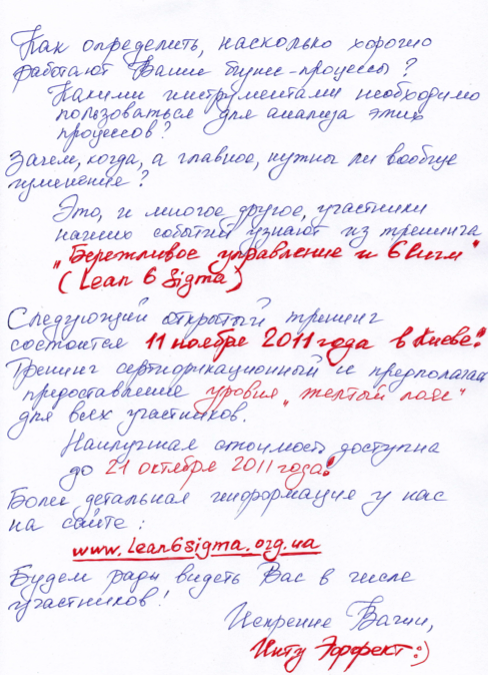 Как определить, насколько хорошо
работают Ваши бизнес-процессы?
Какими инструментами необходимо
пользоваться для анализа этих
процессов?
Зачем, когда, а главное, нужны ли вообще
изменения?
Это, и многое другое, участники
наших событий узнают из тренинга
„Бережливое управление и 6 Сигм"
(Lean 6 Sigma)
Следующий открытый тренинг
состоится 11 ноября 2011 года в Киеве!
Тренинг сертификационный и предполагает
предоставление уровня „желтый пояс"
для всех участников.
Наилучшая стоимость доступна
до 21 октября 2011 года!
Более детальная информация у нас
на сайте:
www.lean6sigma.org.ua
Будем рады видеть Вас в числе
участников!
Искренне Ваши,
Инту Эффект:)